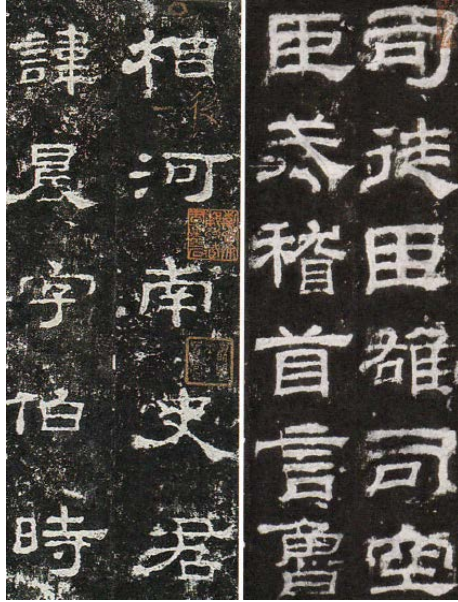 司徒臣雄司空
臣戒稽首言魯
相河南史君
諱晨字伯時